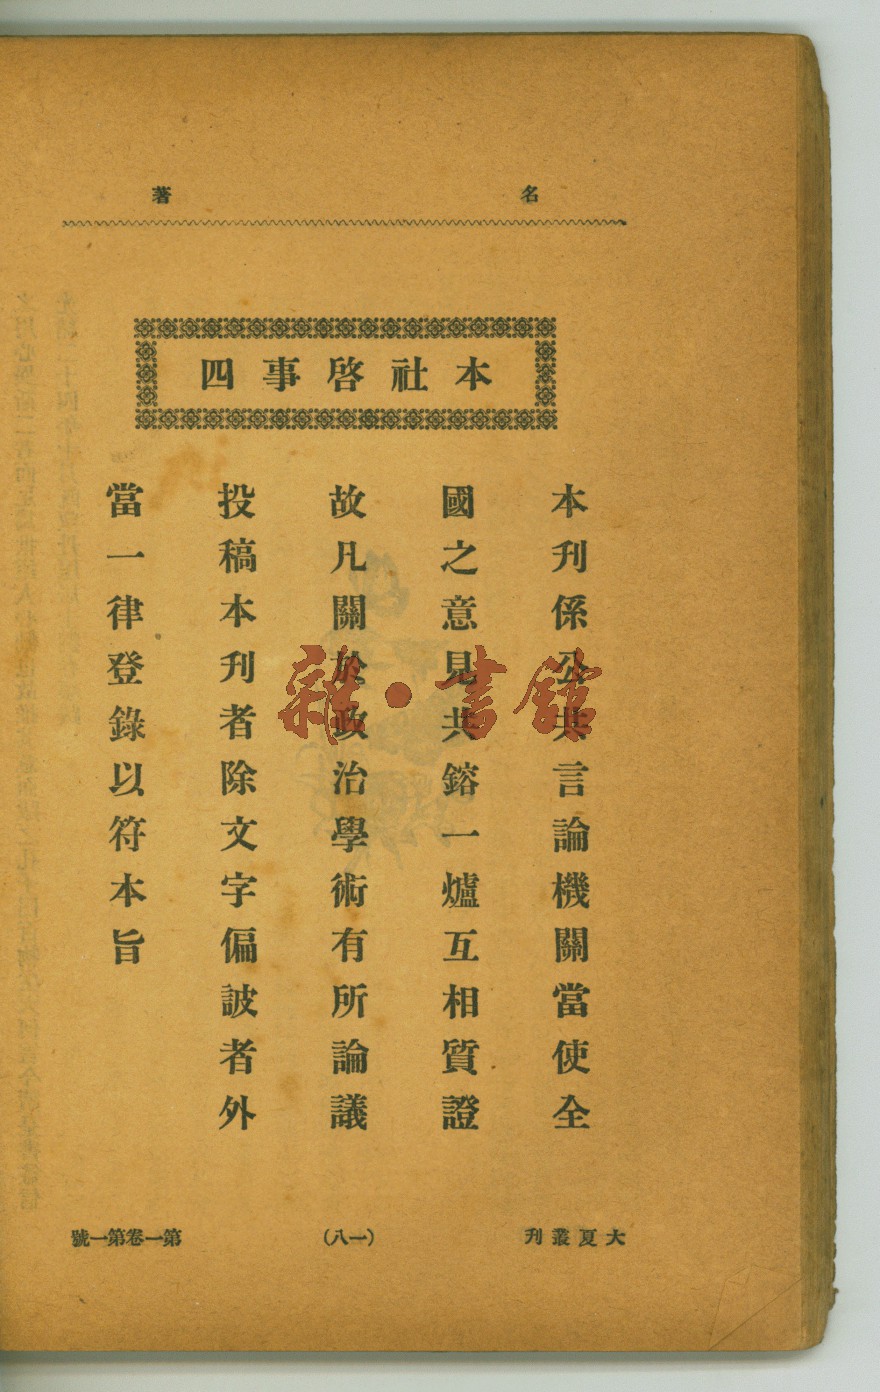 名著
本社啓事四
本刋係公共言論機關當使全
國之意見共鎔一爐互相質證
故凡關於政治學術有所論議
投稿本刋者除文字偏詖者外
當一律登錄以符本旨
雜·書館
大夏叢刊
(一八)
第一卷第一號